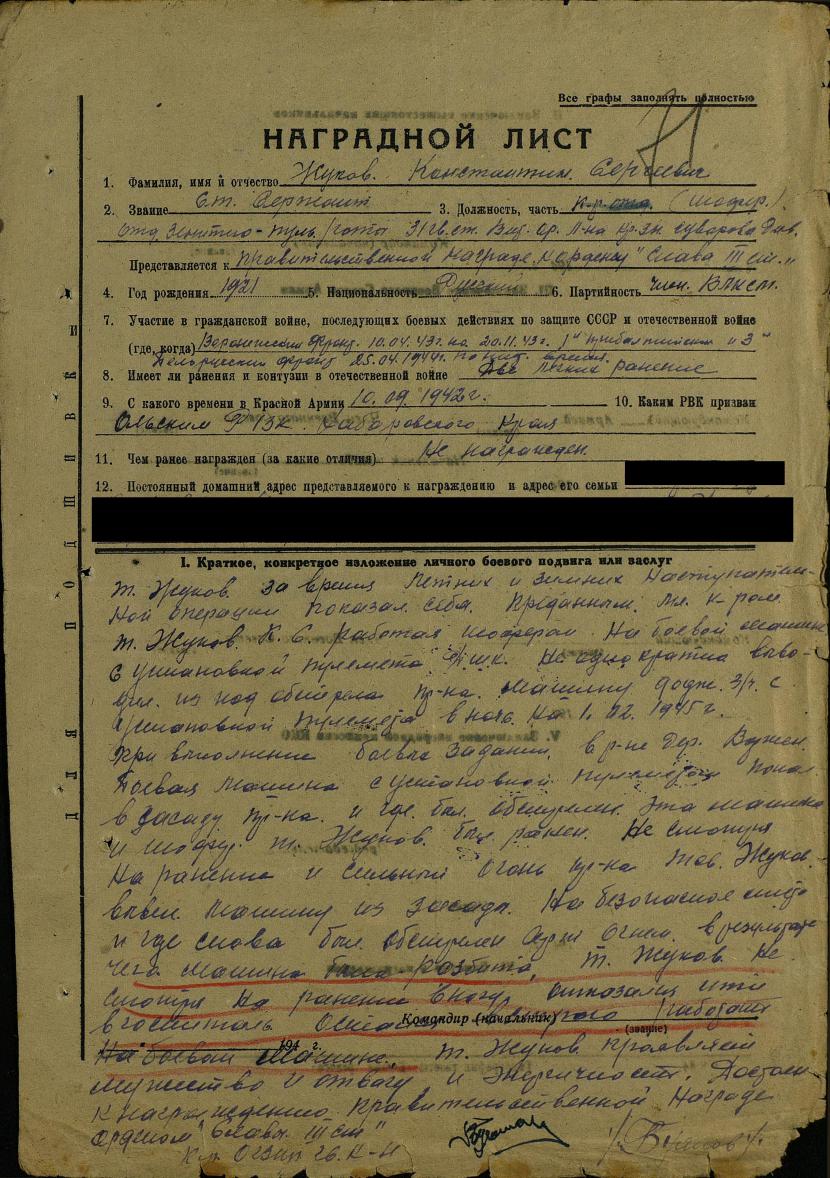 Все графы заполнять полностью
71
НАГРАДНОЙ ЛИСТ
1. Фамилия, имя и отчество Жуков. Константин. Сергеевич
2. Звание Ст. Сержант 3. Должность, часть (шофер.)
Отд. Зенитно-пуль/рота 31 гв. ст. Виц. ор. Л-на кр. зн. Суворова див.
Представляется к правительственной награде. к ордену "Слава III ст."
4. Год рождения 1921 5. Национальность Русский 6. Партийность член. ВЛКСМ.
7. Участие в гражданской войне, последующих боевых действиях по защите СССР и отечественной войне
(где, когда) Воронежский Фронт. 10.04.43г. на 20.11.43г. 1й прибалтийский "3"
Белорусский фронт 25.04.1944г. по наст. время.
8. Имеет ли ранения и контузии в отечественной войне Два легких ранение
9. С какого времени в Красной Армии 10.09.1942г. 10. Каким РВК призван
Ольским РВК. Хабаровского Края
11. Чем ранее награжден (за какие отличия) Не награжден.
12. Постоянный домашний адрес представляемого к награждению и адрес его семьи
ДЛЯ ПОДШИВКИ
I. Краткое, конкретное изложение личного боевого подвига или заслуг
т. Жуков. за время Летних и зимних наступатель-
ной операции показал себя. Преданным. мл. к-ром.
т. Жуков. К. С. работая шофером. На боевой машине
с установкой пулемета ДШК. Не однократно выво-
дил. из под обстрела пр-ка. машину додж. 3/4 с
установкой пулемета в ночь. На 1.02.1945г.
При выполнение боевых задании. в р-не дер.
Боевая машина с установкой пулемета попал
в засаду пр-ка. и где был. обстрелен. эта машина
и шофер. т. Жуков. был ранен. Не смотря
на ранение и сильный огонь пр-ка тов. Жуков.
вывел машину из засады. На безопасное место
и где снова был. обстрелен арт огнем. в результате
чего машина была разбита, т. Жуков. Не
смотря на ранение в ногу, отказался итти
в госпиталь работать
Командир (начальник)
(звание)
194 г.
На боевой машине. т. Жуков проявляет
мужество и отвагу и энергичность. Достоин
к награждению правительственной Награде
орденом "Славы III ст"